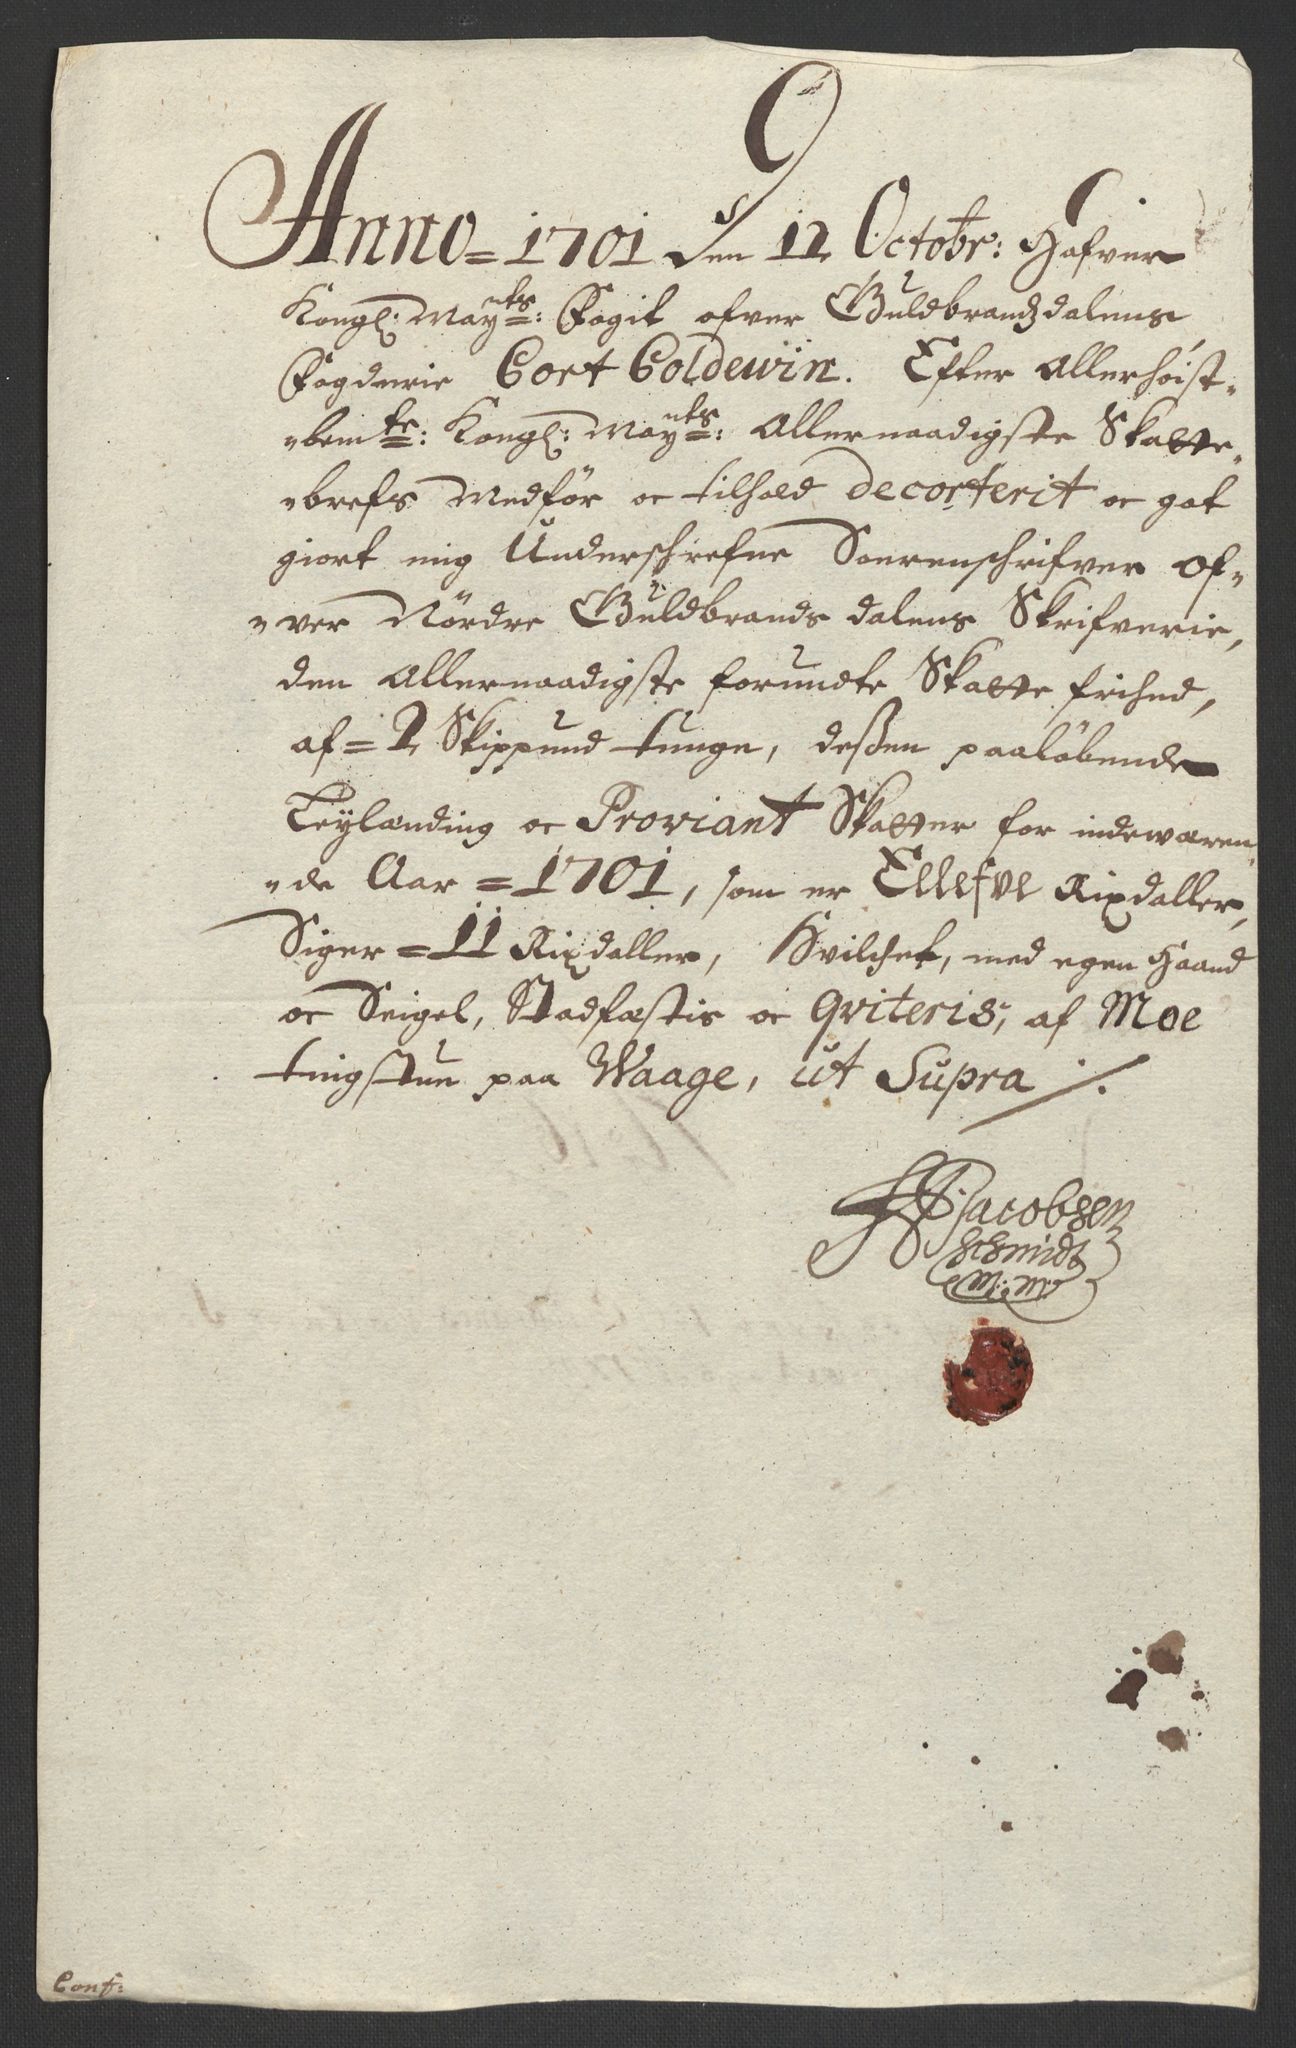 9
Anno = 1701 Den 12 Octobr: Hafver
Kongl: Mayts: Fogit ofver Guldbrandzdalens
Fogderie Cort Coldewin. Efter Allerhöist-
"bemte: Kongl: Mayts: Allernaadigste Skatte-
"brefs Medför oc tilhold decorterit oc got
giort mig Underschrefne Sorenschrifver of-
"ver Nördre Guldbrands dalens Skrifverie,
den Allernaadigste forundte Skatte frihed,
af = 2 Skippund tunge, deßen paaløbende
Leylænding oc Proviant Skatter for indeværen-
"de Aar = 1701, som er Ellefve Rixdaller,
Siger = 11 Rixdaller, Hvilchet, med egen Haand
oc Seigel, Stadfæstis oc Qviteris, af Moe
tingstue paa Waage, ut Supra ./.
Jacobsen
Schmidt
M: M:
Conf: